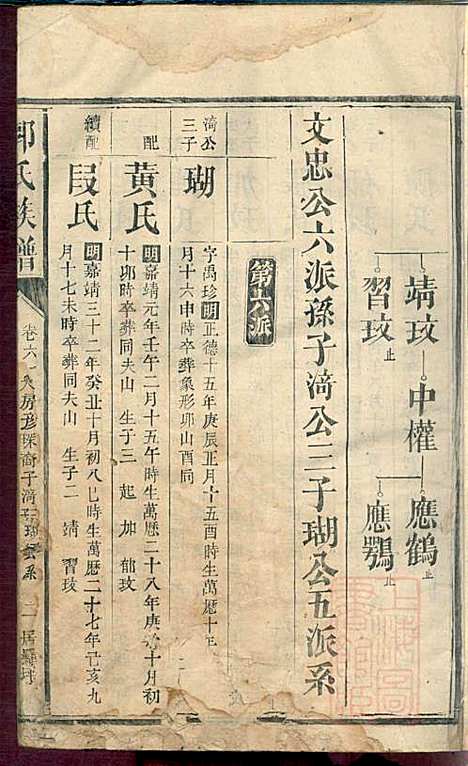 靖玟 中權 應鶴止
習玟止 應鶚止
文忠公六派孫子漪公三子瑚公五派系
第六派
漪公三子
瑚
字禹珍明正德十五年庚辰正月十五酉時生萬曆十
月十六申時卒葬象形卯山酉同
配
黃氏
明嘉靖元年壬午二月十五午時生萬曆二十八年庚 十月初
十卯時卒葬同夫山 生子三 起 加 郁玟
續配
段氏
明嘉靖三十二年癸丑十月初八巳時生萬曆二十七年亡亥九
月十七未時卒葬同夫山 生子二 靖 習玟
氏族譜
卷六 房彦琛裔子漪 瑚 系